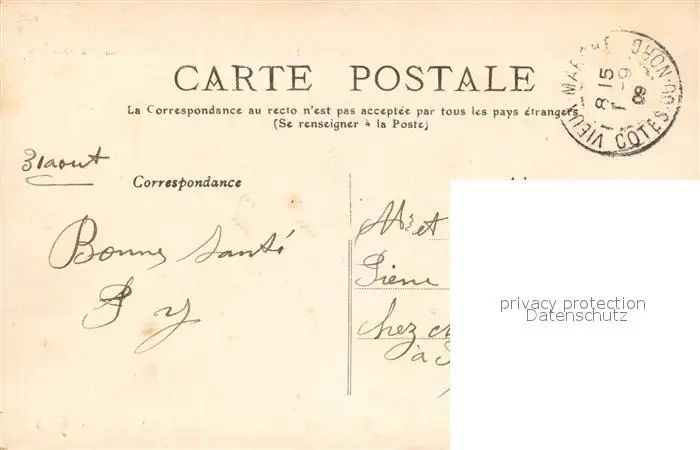 CARTE POSTALE
La Correspondance au recto n'est pas acceptée par tous les pays étrangers
(Se renseigner à la Poste)
VIEUX-MARCHÉ CÔTES-DU-NORD
8 15
1 -9
09
31 aout
Correspondance
Bonne Santé
P Y
Mr et
Pierre
chez
à
privacy protection
Datenschutz